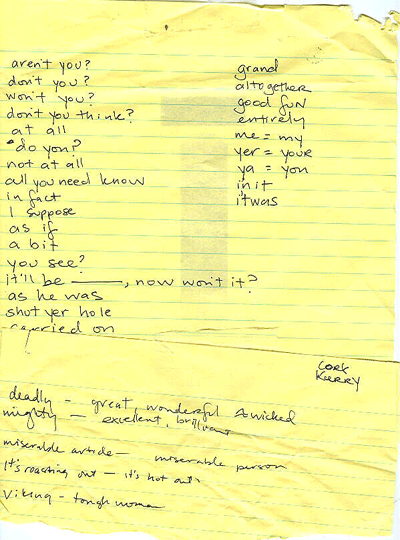 aren't you?
don't you?
won't you?
don't you think?
at all
do you?
not at all
all you need know
in fact
I suppose
as if
a bit
you see?
it'll be ____, now won't it?
as he was
shut yer hole
carried on
grand
altogether
good fun
entirely
me = my
yer = your
ya = you
in it
it was
Cork
Kerry
deadly - great, wonderful wicked
mighty - excellent, brilliant
miserable article - miserable person
It's roasting out - it's hot out
Viking - tough woman